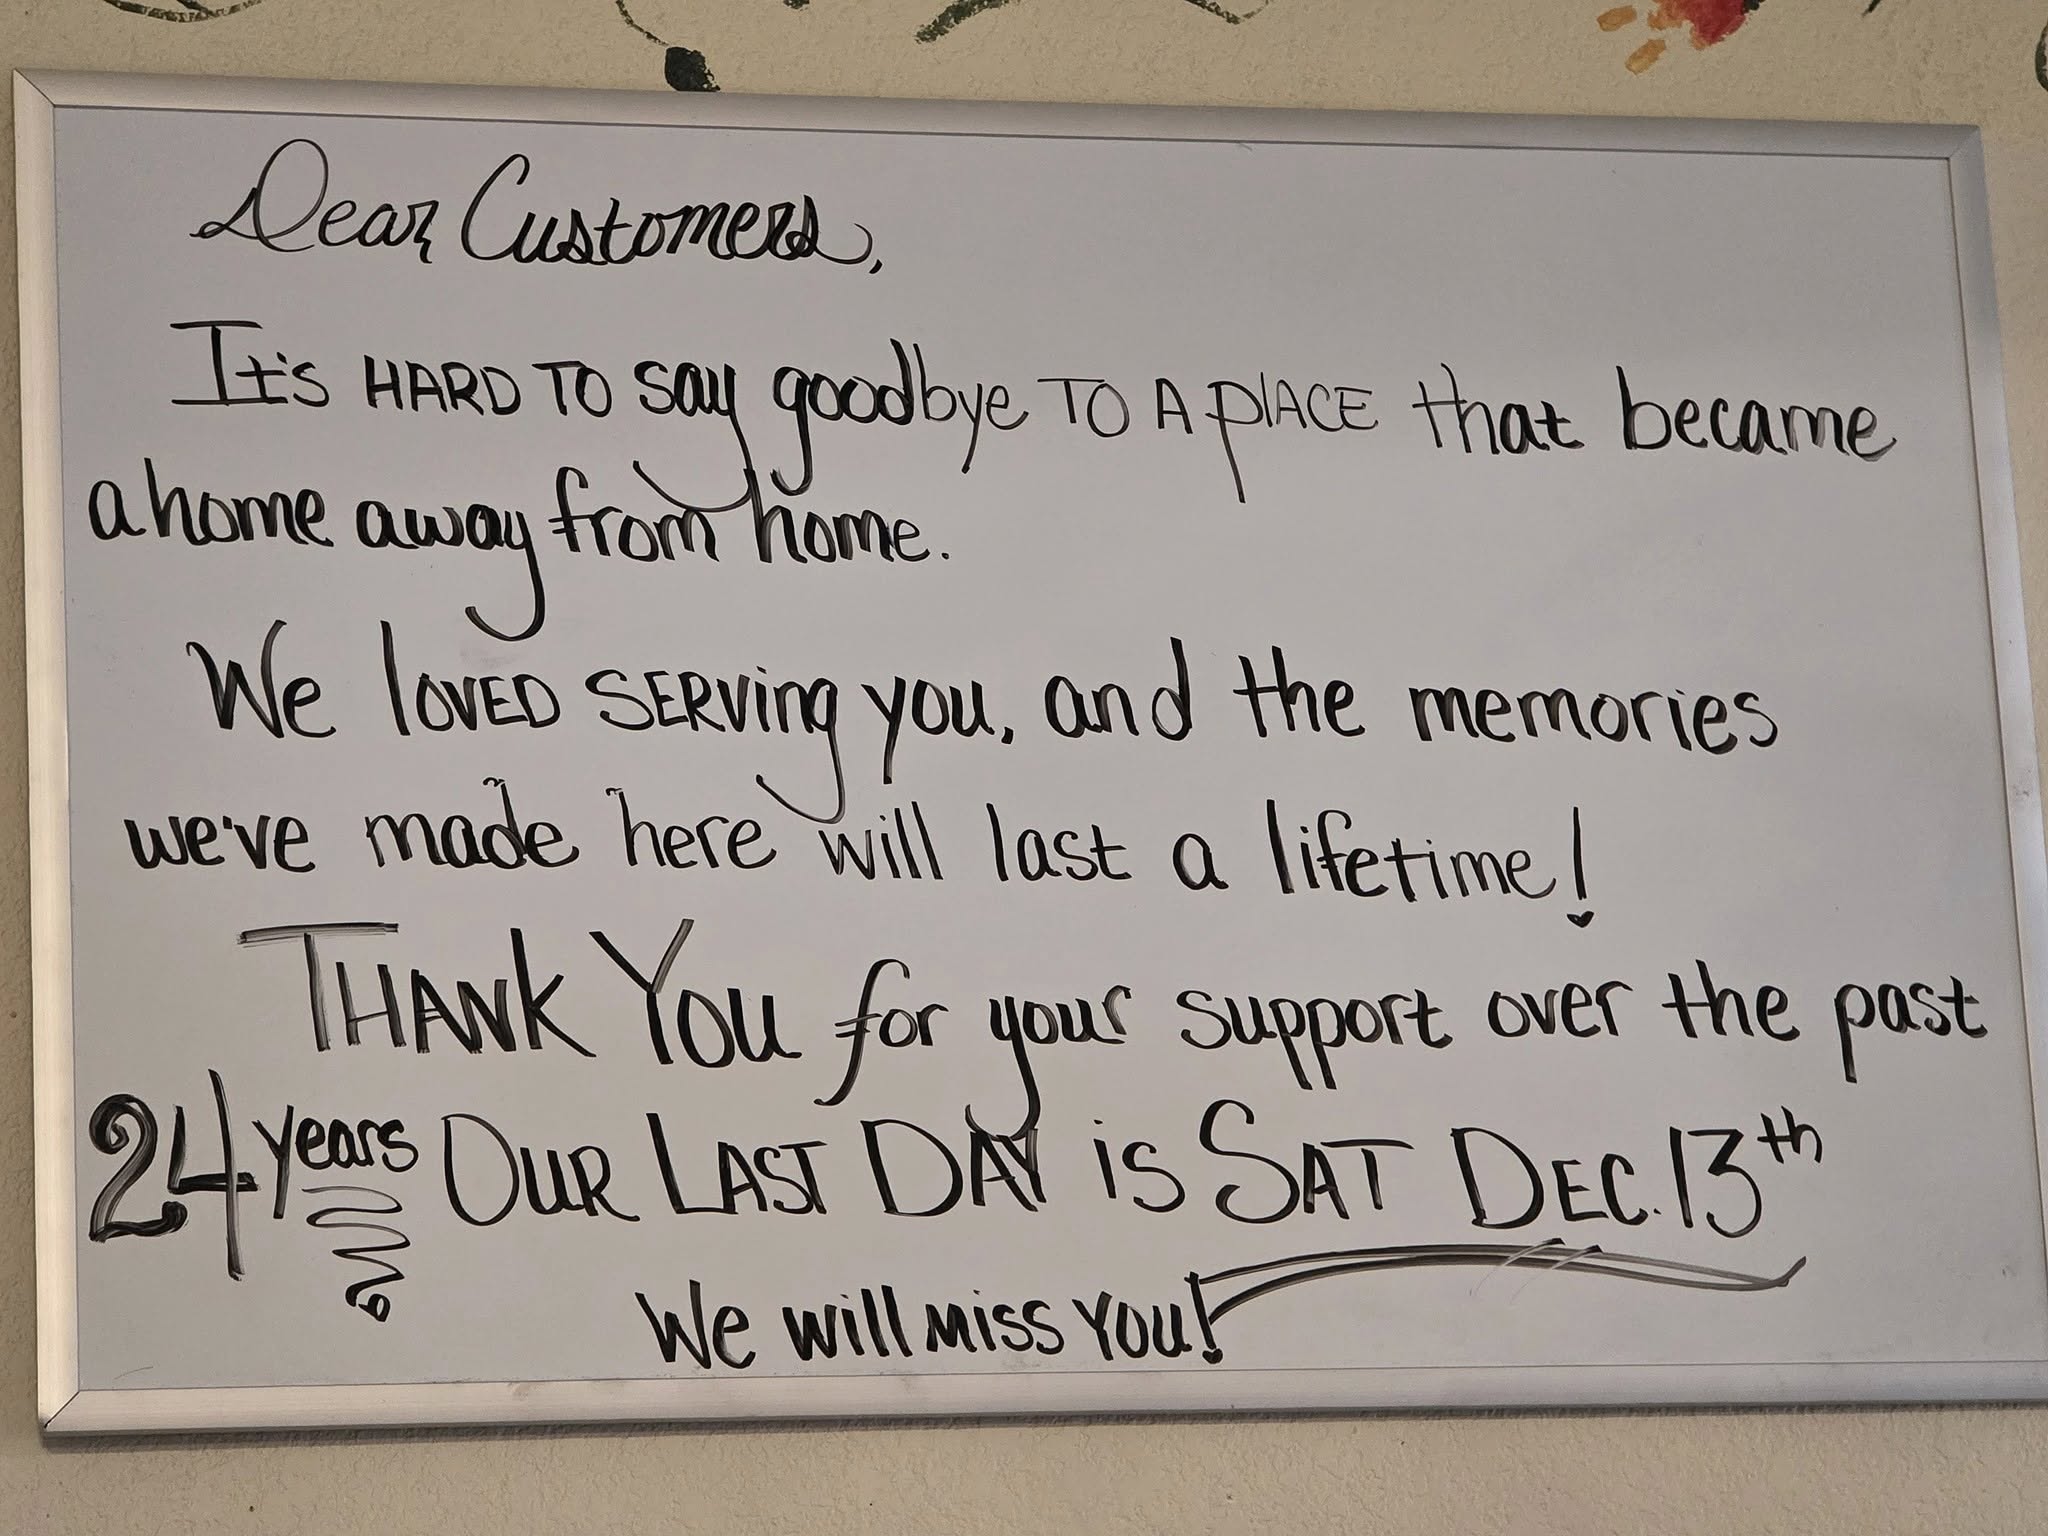 Dear Customers,
It's HARD TO say goodbye TO A PlACE that became
a home away from home.
We lOVED SERVing you, and the memories
we've made here will last a lifetime!
THANK YOU for your support over the past
24 years OUR LAST DAY iS SAT DEC. 13th
We will Miss YOU!